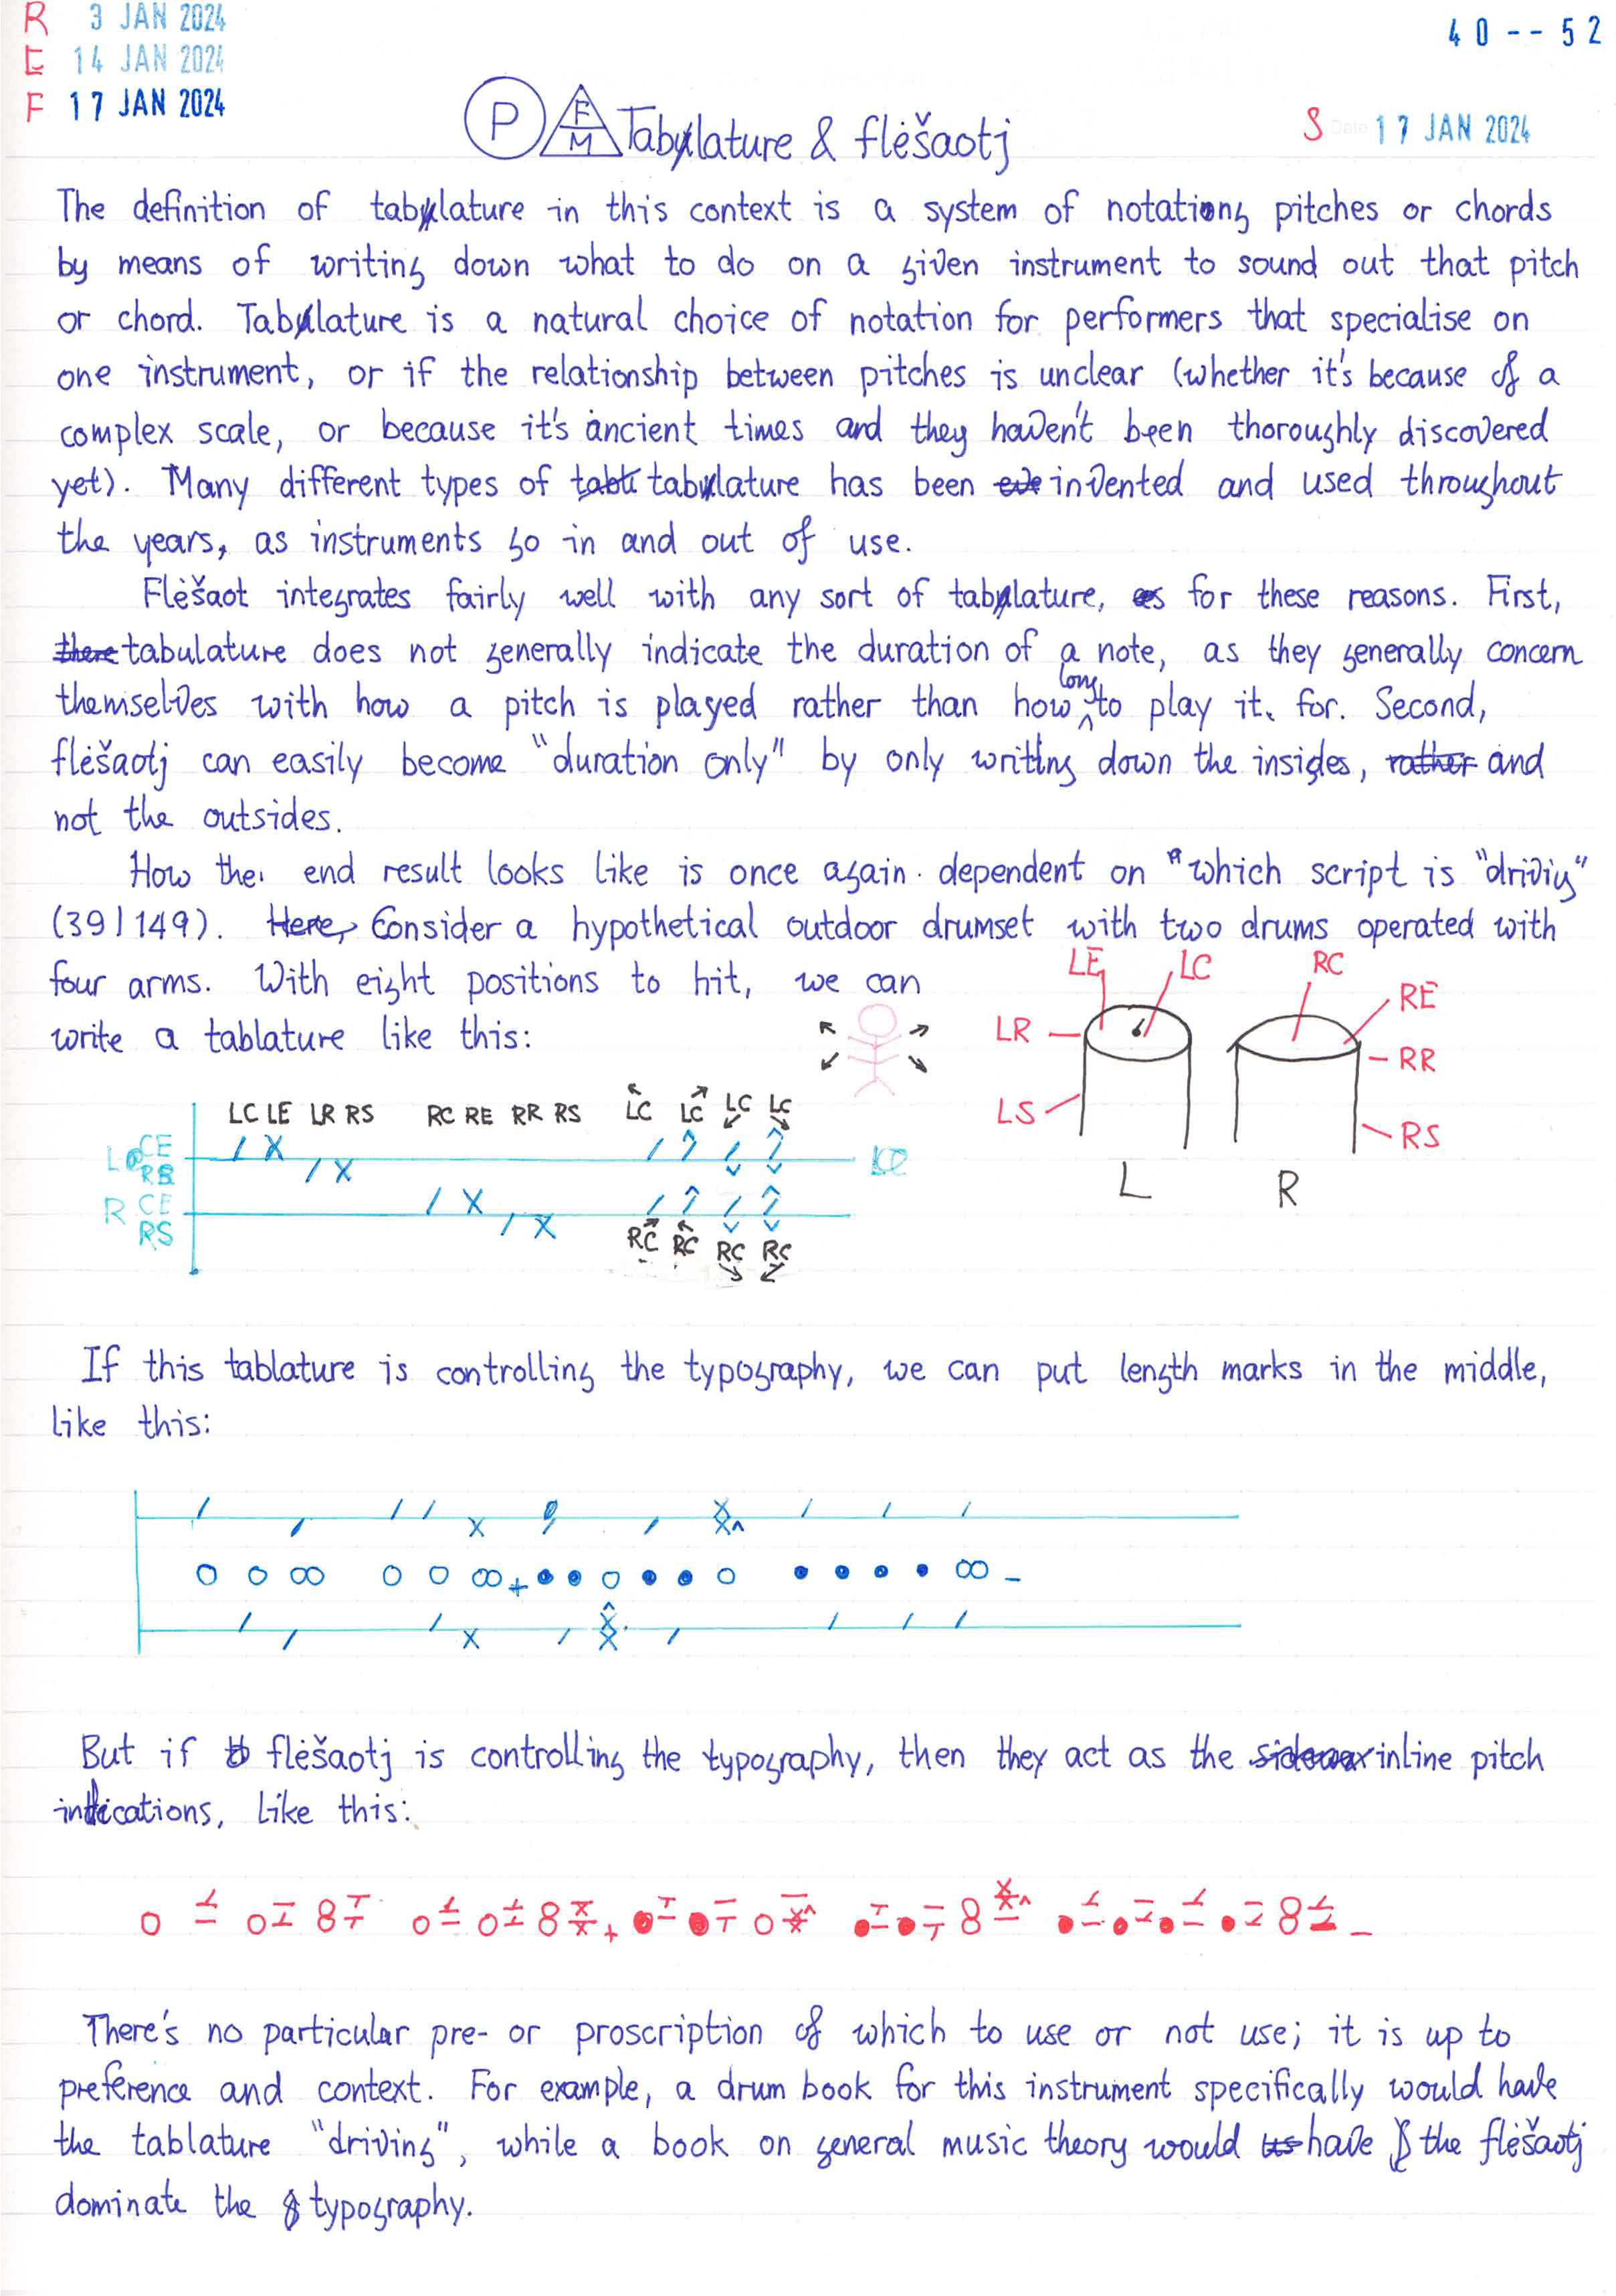 R 3 JAN 2024
E 14 JAN 2024
F 17 JAN 2024
40--52
P F M Tablature & flėšaotj
S Date 17 JAN 2024
The definition of tablature in this context is a system of notating pitches or chords
by means of writing down what to do on a given instrument to sound out that pitch
or chord. Tablature is a natural choice of notation for performers that specialise on
one instrument, or if the relationship between pitches is unclear (whether it's because of a
complex scale, or because it's ancient times and they haven't been thoroughly discovered
yet). Many different types of tablature has been invented and used throughout
the years, as instruments go in and out of use.
Flėšaot integrates fairly well with any sort of tablature, for these reasons. First,
tabulature does not generally indicate the duration of a note, as they generally concern
themselves with how a pitch is played rather than how long to play it for. Second,
flėšaotj can easily become "duration only" by only writing down the insides, and
not the outsides.
How the end result looks like is once again dependent on which script is "drivig"
(39|149). Consider a hypothetical outdoor drumset with two drums operated with
four arms. With eight positions to hit, we can
write a tablature like this:
LE LC RC RE
LR RR
LS RS
L R
LC LE LR RS RC RE RR RS LC LC LC LC
L CE
RS
R CE
RS
RC RC RC RC
If this tablature is controlling the typography, we can put length marks in the middle,
like this:
But if flėšaotj is controlling the typography, then they act as the inline pitch
indications, like this:
There's no particular pre- or proscription of which to use or not use; it is up to
preference and context. For example, a drum book for this instrument specifically would have
the tablature "driving", while a book on general music theory would have the flėšaotj
dominate the typography.